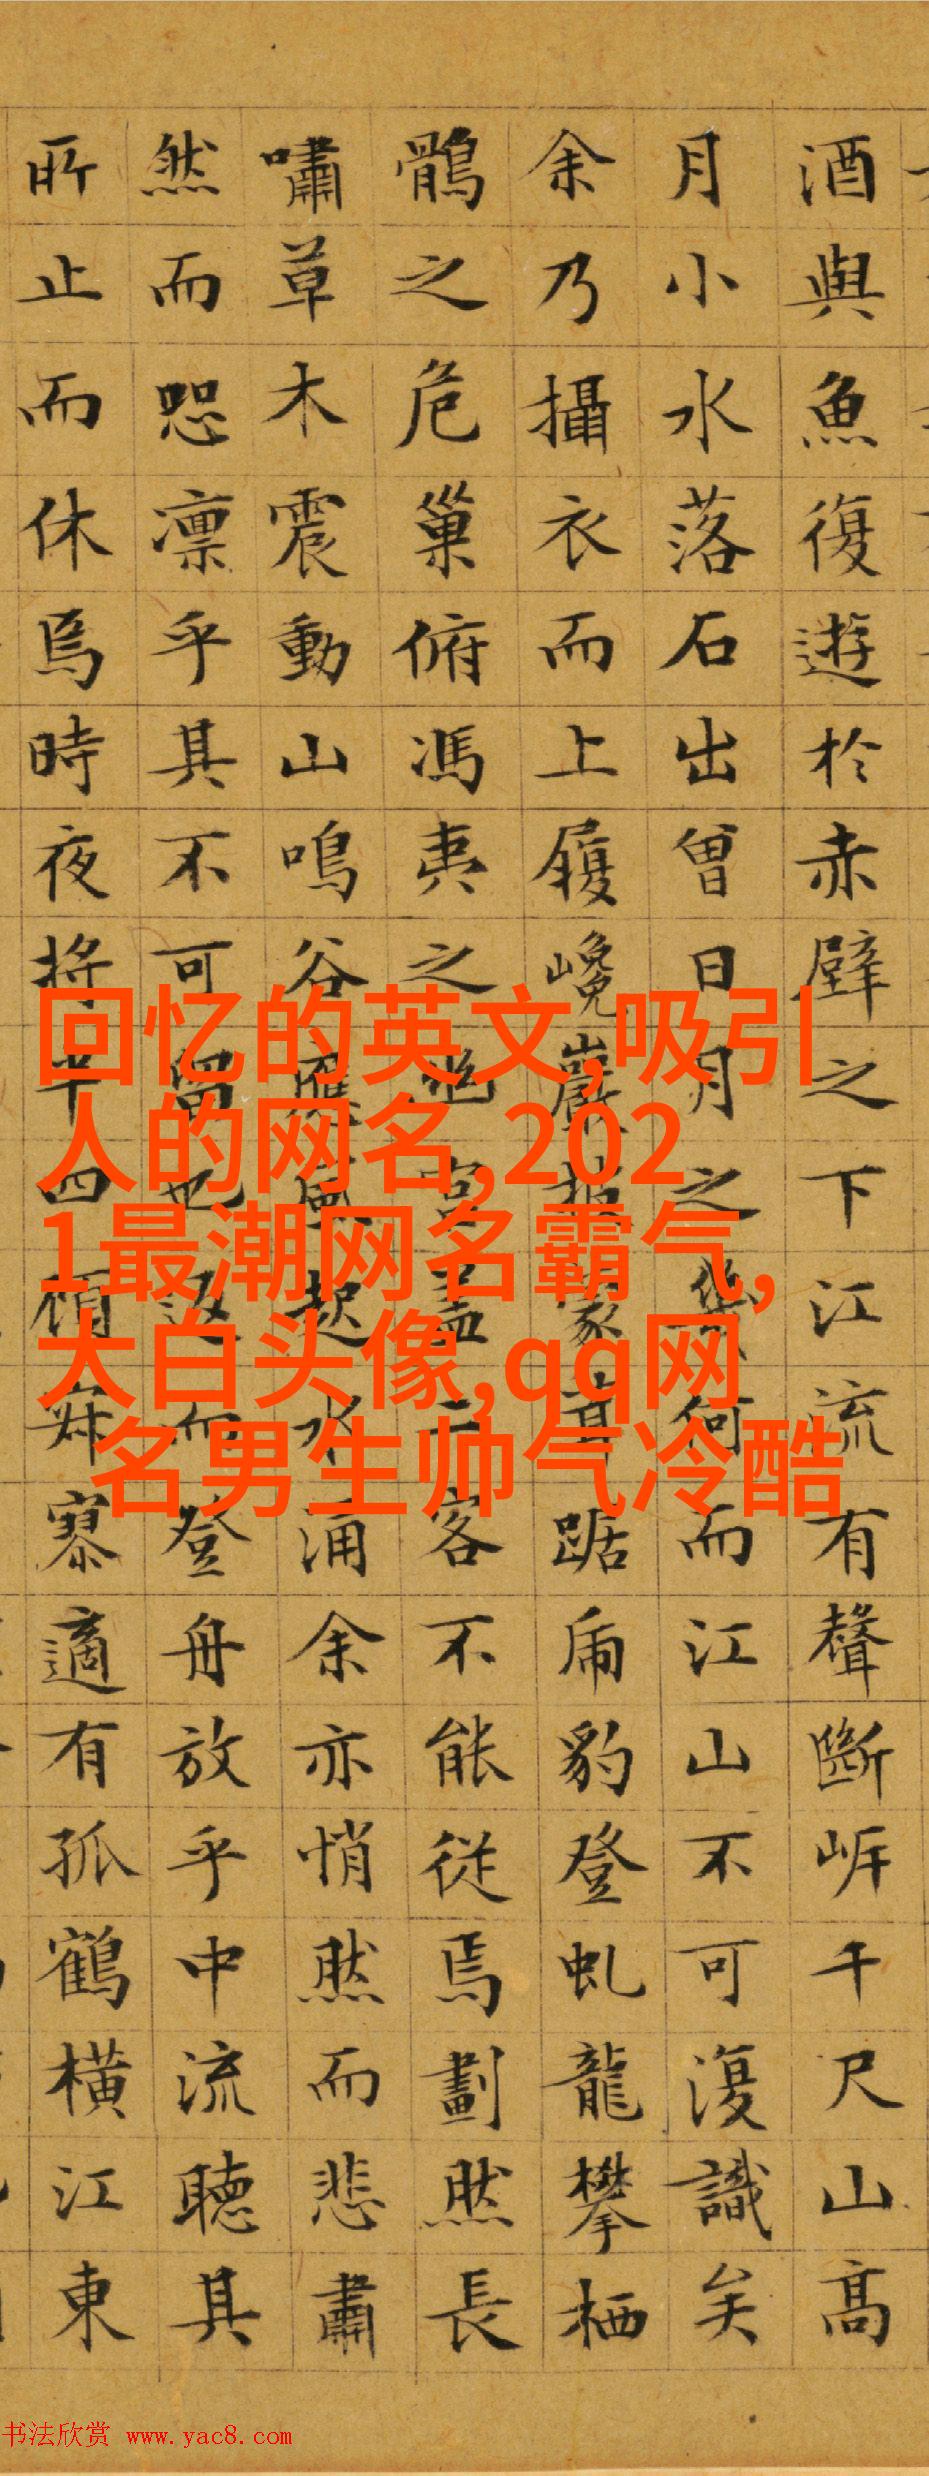 酒與魚復遊於赤壁之下江流有聲斷岸千尺山高
月小水落石出曾日月之幾何而江山不可復識矣
余乃攝衣而上履巉巖披蒙茸踞虎豹登虬龍攀栖
鶻之危巢俯馮夷之幽宮蓋二客不能從焉劃然長
嘯草木震動山鳴谷應風起水涌余亦悄然而悲肅
然而恐凛乎其不可留也返而登舟放乎中流聽其
所止而休焉時夜將半四顧寂寥適有孤鶴橫江東
回忆的英文,吸引
人的网名,202
1最潮网名霸气,
大白头像,qq网
名男生帅气冷酷
书法欣赏 www.yac8.com